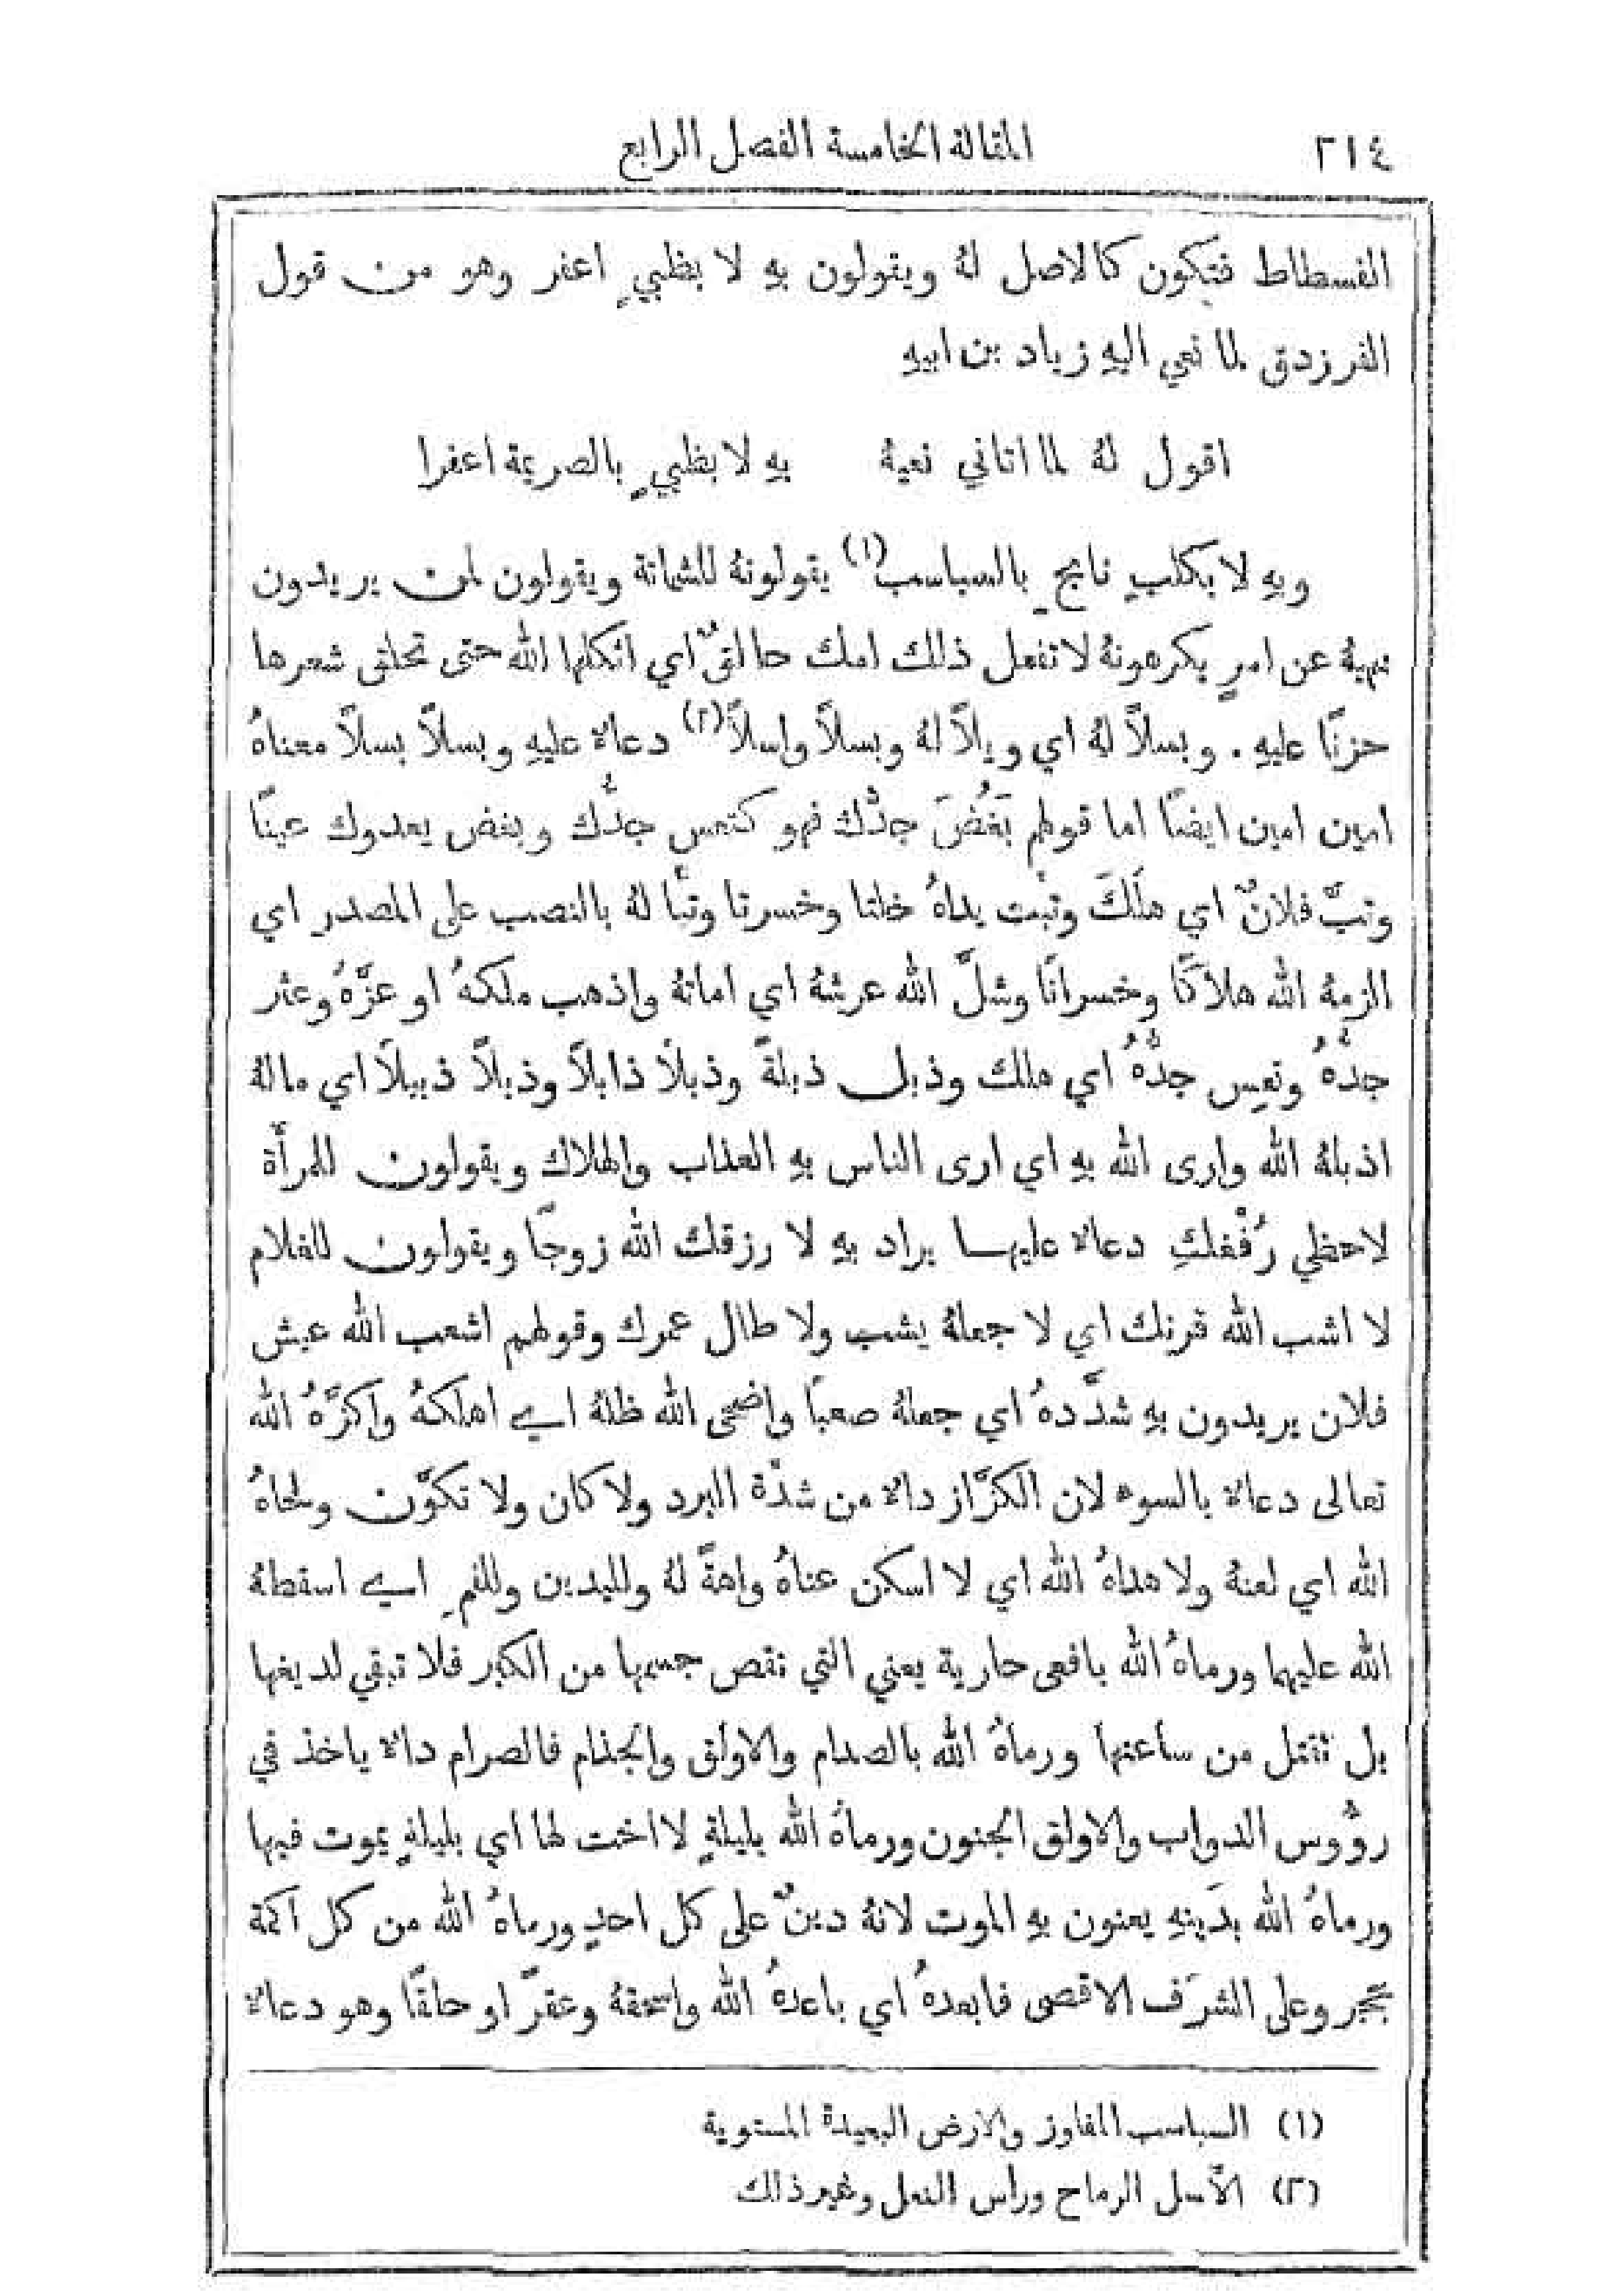 ٢١٤ المقالة الخامسة الفصل الرابع
الفسطاط فتكون كالاصل لهُ ويقولون بهِ لا بظبيٍ اعفر وهو من قول
الفرزدق لما نعي اليهِ زياد بن ابيهِ
اقول لهُ لما اتاني نعيهُ بهِ لا بظبيٍ بالصريمة اعفرا
وبهِ لا بكلبٍ نابحٍ بالسباسب(١) يقولونهُ للشماتة ويقولون لمن يريدون
نهيهُ عن امرٍ يكرهونهُ لا تفعل ذلك امك حالقٌ اي اثكلها الله حتى تحلق شعرها
حزنًا عليهِ . وبسلاً لهُ اي ويلاً لهُ وبسلاً واسلاً(٢) دعاءٌ عليهِ وبسلاً بسلاً معناهُ
امين امين ايضًا اما قولهم بَغُضَ جدُّك فهو كتعس جدُّك وبغض بعدوك عينًا
وتبَّ فلانٌ اي هلَكَ وتبَّت يداهُ ضلتا وخسرتا وتبًّا لهُ بالنصب على المصدر اي
الزمهُ الله هلاكًا وخسرانًا وثلَّ الله عرشهُ اي اماتهُ واذهب ملكهُ او عزَّهُ وعثر
جدُّهُ وتعس جدُّهُ اي هلك وذبل ذبلةً وذبلاً ذابلاً وذبلاً ذبيلاً اي ما لهُ
اذبلهُ الله وارى الله بهِ اي ارى الناس بهِ العذاب والهلاك ويقولون للمرأة
لاحظي رُفْغلكِ دعاءٌ عليها يراد بهِ لا رزقك الله زوجًا ويقولون للغلام
لا اشب الله قرنك اي لا جعلهُ يشب ولا طال عمرك وقولهم اشعب الله عيش
فلان يريدون بهِ شدَّدهُ اي جعلهُ صعبًا واضحى الله ظلهُ اي اهلكهُ وأكزَّهُ الله
تعالى دعاءٌ بالسوء لان الكزَّاز داءٌ من شدَّة البرد ولا كان ولا تكوَّن ولحاهُ
الله اي لعنهُ ولا هداهُ الله اي لا اسكن عناهُ واهةً لهُ ولليدين وللفمِ اي اسقطهُ
الله عليهما ورماهُ الله بافعى حارية يعني التي نقص جسمها من الكبر فلا تبقي لديغها
بل تقتل من ساعتها ورماهُ الله بالصدام والاولق والجذام فالصرام داءٌ ياخذ في
رؤُوس الدواب والاولق الجنون ورماهُ الله بليلةٍ لا اخت لها اي بليلةٍ يموت فيها
ورماهُ الله بدَينهِ يعنون بهِ الموت لانهُ دينٌ على كل احدٍ ورماهُ الله من كل أكمة
بحجر وعلى الشرَف الاقصى فابعدهُ اي باعدهُ الله واسحقهُ وعقرًا او حلقًا وهو دعاءٌ
(١) السباسب المفاوز والارض البعيدة المستوية
(٢) الأسل الرماح وراس النعل وغير ذلك